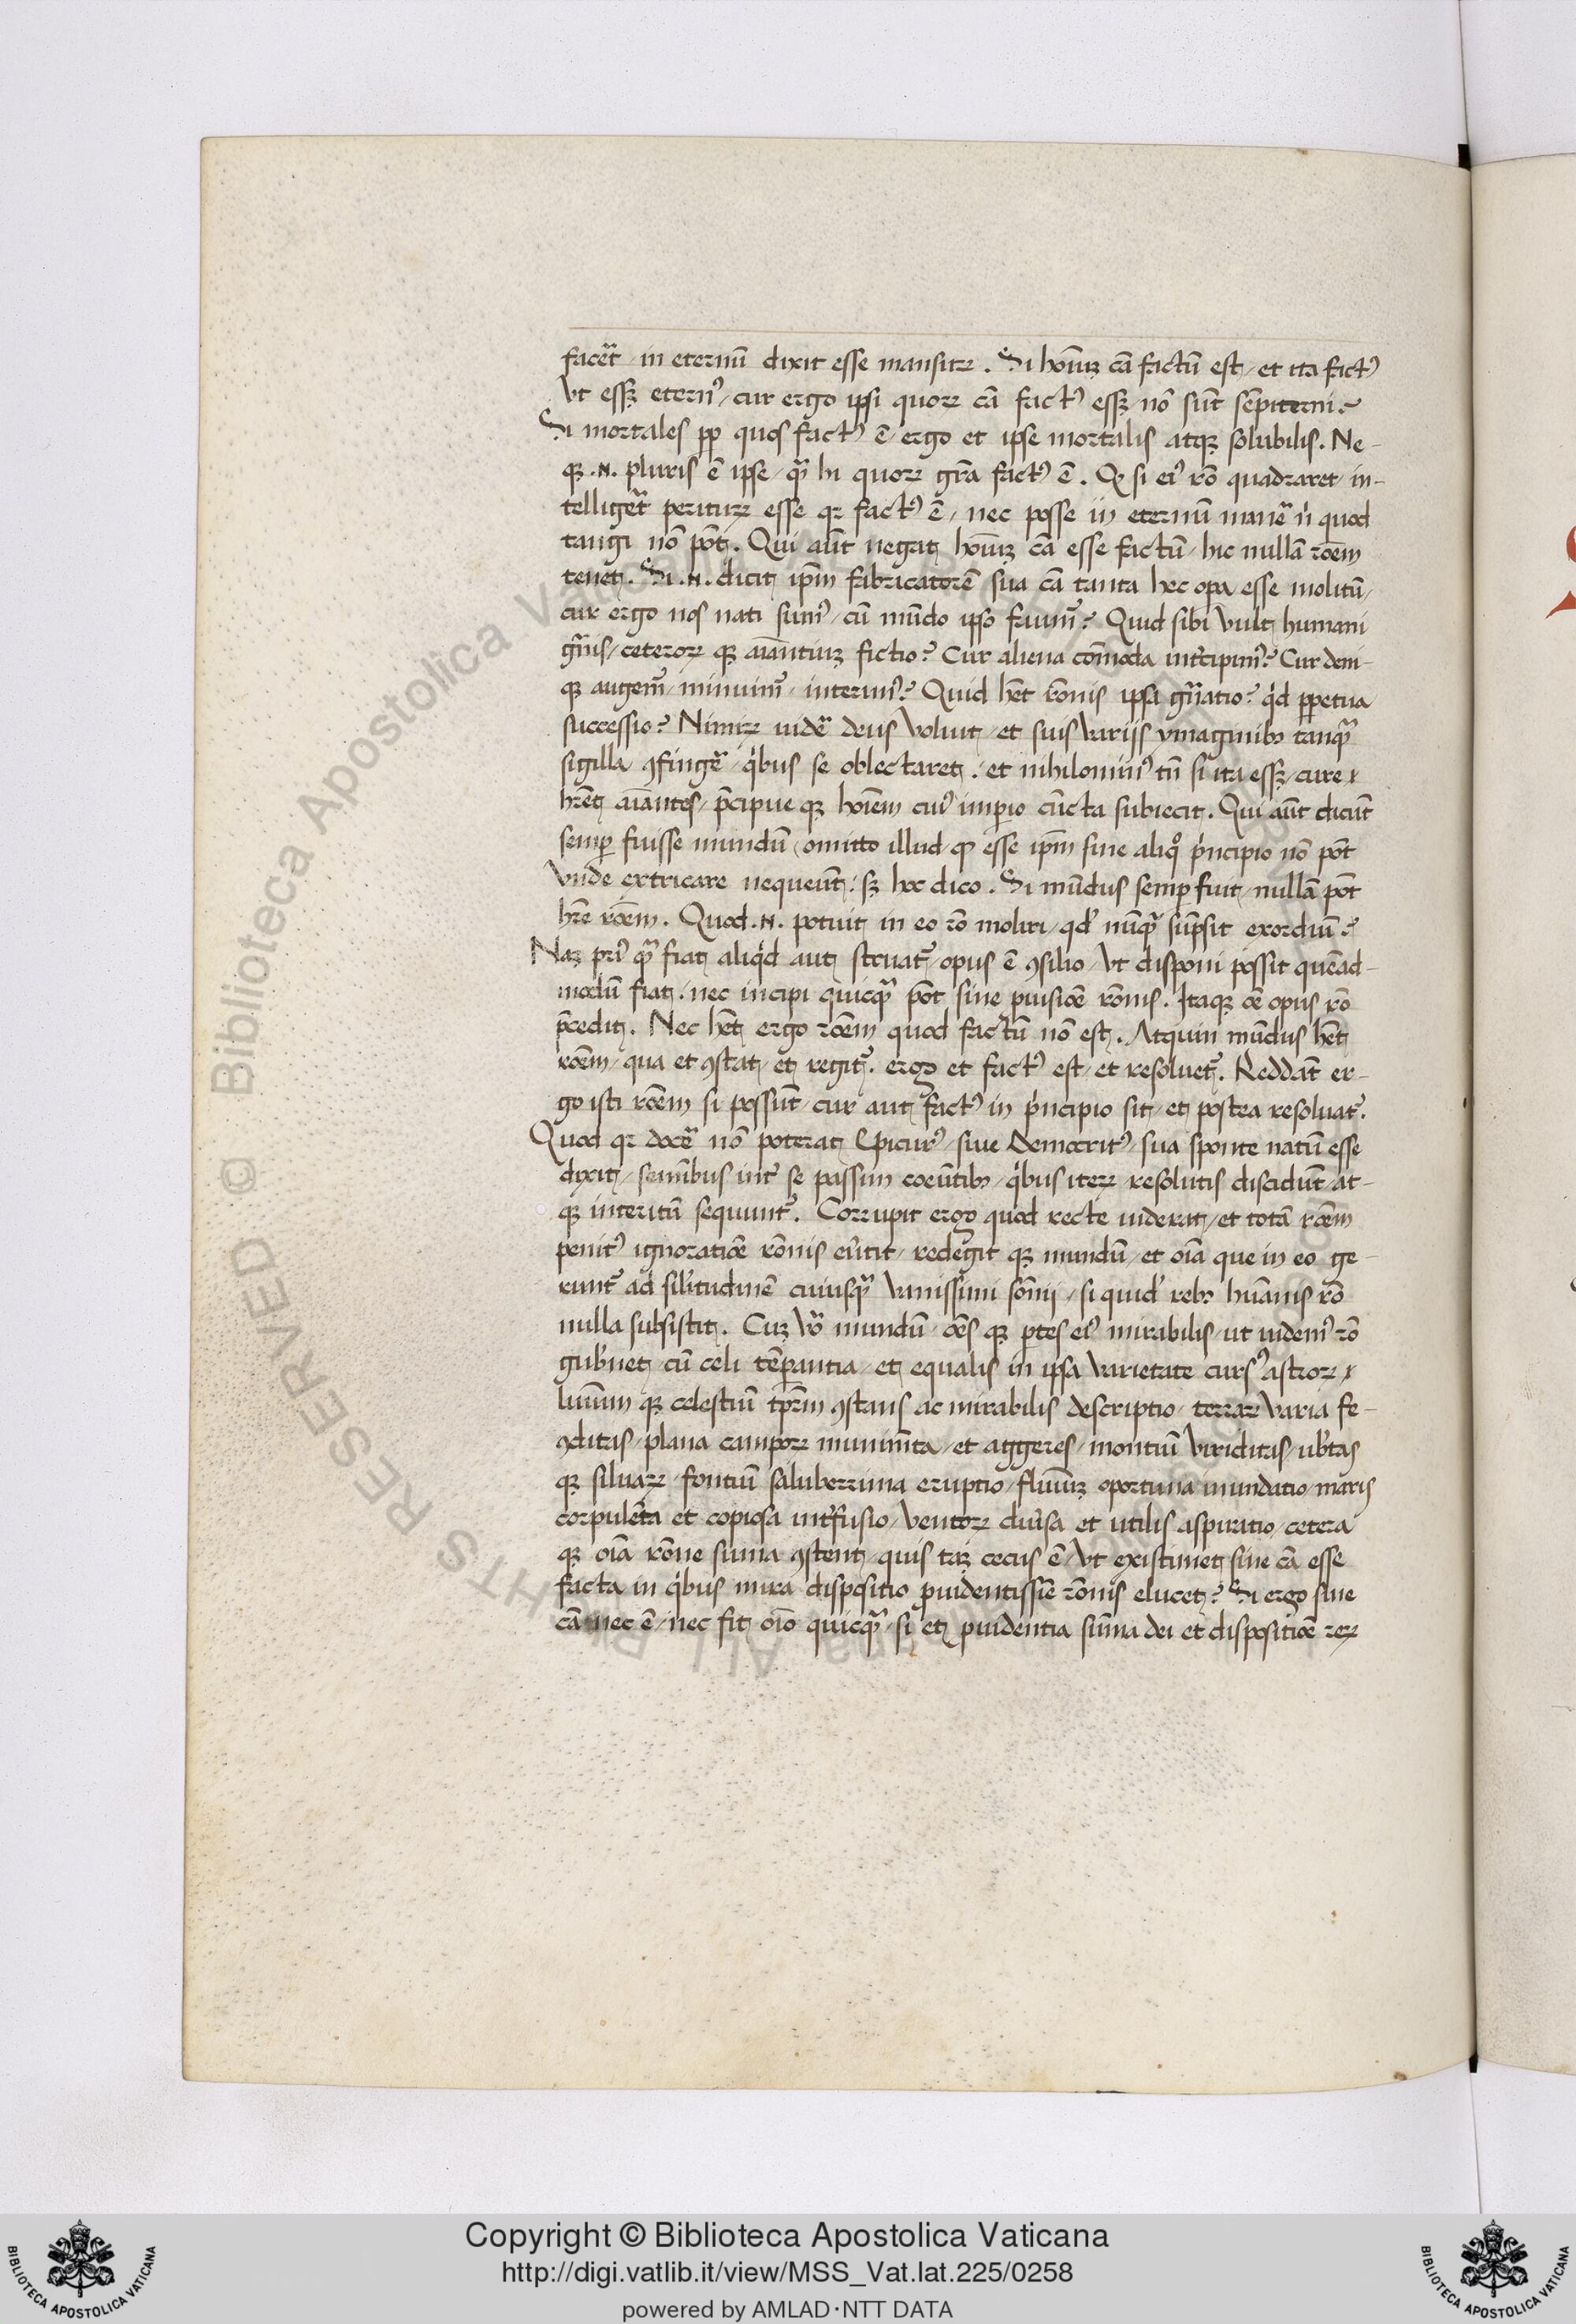 facēt in eternū dixit esse mansuꝝ. Si hoīuꝫ cā factū est et ita factꝰ
vt essꝫ eternꝰ cur ergo ipsi quoꝝ cā factꝰ essꝫ nō sūt sēpiterni?
Si mortales ꝓp quos factꝰ ē ergo et ipse mortalis atqꝫ solubilis. Ne-
qꝫ .n. pluris ē ipse quā hi quoꝝ grā factꝰ ē. Qꝫ si eiꝰ rō quadraret in-
telligēt periturꝝ esse qꝛ factꝰ ē nec posse in eternū manē nͥ quod
tangi nō pōt. Qui aūt negat hoīuꝫ cā esse factū hic nullā roēm
tenet. Si .n. dicit ip̄m fabricatorē sua cā tanta hec opa esse molitū
cur ergo nos nati sumꝰ cū mūdo ipso fruimꝰ? Quid sibi vult humani
gn̄is ceteroꝝ qꝫ aīantiuꝫ fictio? Cur aliena cōmoda intͤcipimꝰ? Cur deni-
qꝫ augemꝰ minuimꝰ interimꝰ? Quid hēt rōnis ipsa gn̄ratio? qͥd ꝑpetua
successio? Nimiꝝ uidē deus voluit et suis varijs ymaginibꝫ tanqꝫ
sigilla ꝯfingē qͥbus se oblectaret. et nihilominꝰ tn̄ si ita essꝫ cure
hrēt aīantes p̄cipue qꝫ hoīem cuiꝰ imꝑio cūcta subiecit. Qui aūt dicūt
semꝑ fuisse mundū omitto illud ꝙ esse ip̄m sine aliqͦ pͥncipio nō pōt
vnde extricare nequeūt. sꝫ hoc dico. Si mūdus semꝑ fuit nullā pōt
hr̄e roēm. Quod .n. potuit in eo rō moliri qdͩ nūquā sūpsit exordiū?
Naꝫ priꝰ quā fiat aliqͥd aut struatꝰ opus ē ꝯsilio vt disponi possit quēad-
modū fiat. nec incipi quicquā pōt sine ꝓuisiōe rōnis. Itaqꝫ oē opus rō
p̄cedit. Nec hēt ergo roēm quod factū nō est. Atquin mūdus hēt
roēm qua et ꝯstat et regitꝰ. ergo et factꝰ est et resoluetꝰ. Reddāt er-
go isti roēm si possūt cur aut factꝰ in pͥncipio sit et postea resoluatꝰ.
Quod qꝛ docē nō poterat Epicurꝰ siue Democritꝰ sua sponte natū esse
dixit semībus intͤ se passim coeūtibꝫ qͥbus iteꝝ resolutis discidiūt at-
qꝫ interitū sequuntꝰ. Corrupit ergo quod recte uiderat et totā roēm
penitꝰ ignoratiōe rōnis euͥtit redegit qꝫ mundū et oīa que in eo ge-
runtꝰ ad silͥitudinē cuiusquā vanissimi sōnij si quidͩ rebꝫ hūanis rō
nulla subsistit. Cuꝫ vͦo mundū oēs qꝫ ꝑtes eiꝰ mirabilis ut uidemꝰ rō
gubͤnet cū celi tēꝑantia et equalis in ipsa varietate cursꝰ astroꝝ
luminū qꝫ celestiū tꝑm ꝯstans ac mirabilis descriptio terraꝝ varia fe-
cūditas plana campoꝝ munimīta et aggeres montiū viriditas ubͤtas
qꝫ siluaꝝ fontiū saluberrima eruptio fluuiuꝫ oportuna inundatio maris
corpulēta et copiosa intͤfusio ventoꝝ diuͤsa et utilis aspiratio cetera
qꝫ oīa rōne suma ꝯstent quis taꝫ cecus ē vt existimet sine cā esse
facta in qͥbus mira dispositio ꝓuidentissie rōnis elucet? Si ergo sine
cā nec ē nec fit oīo quicquā si et ꝓuidentia sūma dei et dispositiōe reꝝ
Copyright © Biblioteca Apostolica Vaticana
http://digi.vatlib.it/view/MSS_Vat.lat.225/0258
powered by AMLAD·NTT DATA